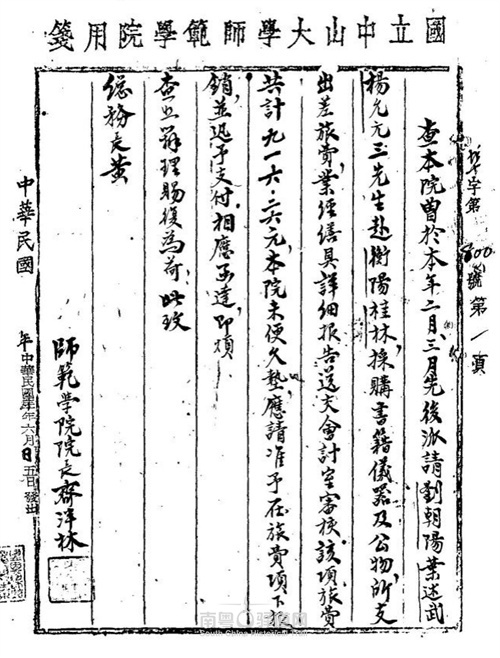 國立中山大學師範學院用箋
字第800號第1頁
查本院曾於本年二月、三月先後派請劉朝陽葉述武
楊允元三先生赴衡陽桂林，採購書籍儀器及公物，所支
出差旅費，業經繕具詳細報告送交會計室審核，該項旅費
共計九一六.二六元，本院未便久墊，應請准予在旅費項下報
銷，並迅予支付，相應函達，即煩
查照辦理賜復為荷，此致
總務長黃
師範學院院長齊泮林
中華民國 年 中華民國 年六月五日發出